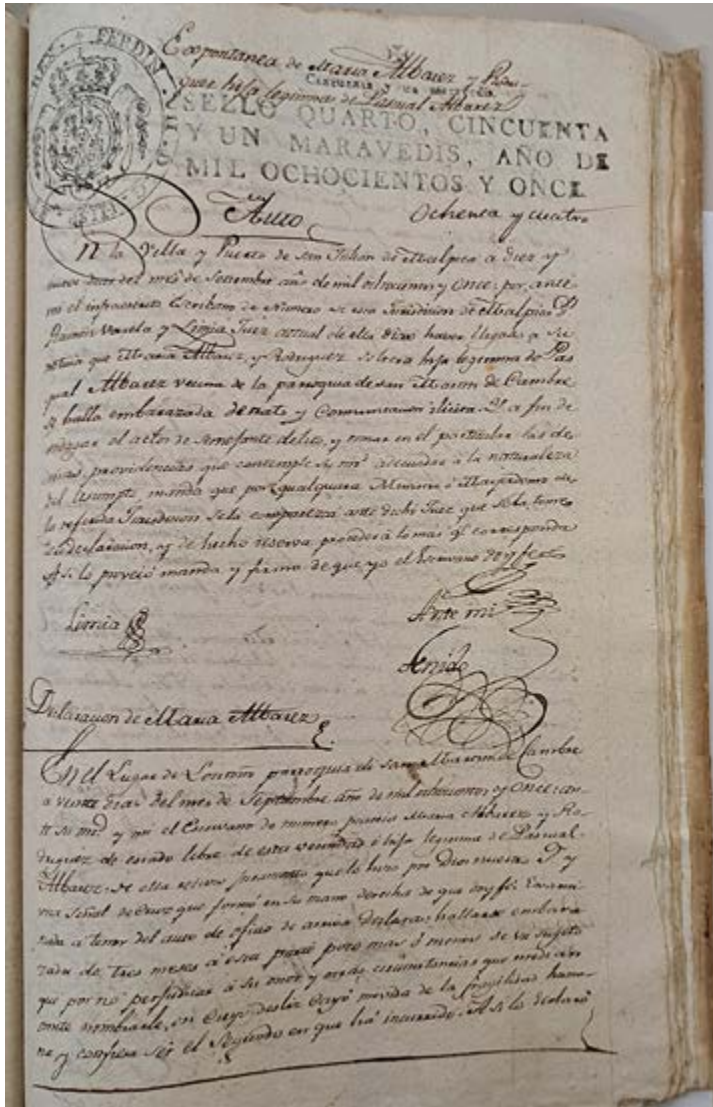 Expontanea de Maria Albarez y Rodri-
guez hija legitima de Pasqual Albarez
SELLO QUARTO, CINCUENTA
Y UN MARAVEDIS, AÑO DE
MIL OCHOCIENTOS Y ONCE
Auto
ochenta y cuatro
N la Villa y Puerto de San Julian de Malpica a diez y
nueve dias del mes de Setiembre año de mil ochocientos y once: por, ante
mi el infraescrito Escribano de Numero de esta Jurisdicion de Malpica Dn
Ramon Varela y Limia Juez actual de ella Dixo haver llegado a su
noticia que Maria Albarez, y Rodriguez soltera hija legitima de Pas
qual Albarez vecina de la parroquia de san Martin de Cambre
se halla embarazada de trato y Comunicacion ilicita. Y a fin de
el actor de semejante delito, y tomar en el particular las de
mas providencias que contemple su md adecuadas a la naturaleza
del asumpto, manda que por qualquiera Merino o Mayordomo de
la referida Jurisdicion se la comparezca ante dicho Juez que se la tome
declaracion, y de hecho reserva proceder a lo mas qe corresponda
Asi lo proveió manda y firma de que yo el Escrivano doy fee
Limia
Ante mi
Declaracion de Maria Albarez
En el Lugar de parroquia de san Martin de Cambre
a veinte dias del mes de Septiembre año de mil ochocientos y Once: an-
te su md y mi el Escrivano de numero parecio Maria Albarez y Ro-
driguez de estado libre de esta vecindad é hija legitima de Pasqual
Albarez. De ella recivio juramento que lo hizo por Dios nuestro Sr y
una señal de Cruz que formó en su mano derecha de que doy fé. Exami
nada a tenor del auto de oficio de arriva Declara: hallarse embara
zada de tres meses a esta parte poco mas ó menos de un sujeto
que por no perjudicar à su onor y otras circunstancias que median
omite nombrarle, en cuyo desliz cayó movida de la fragilidad huma-
na y confiesa ser el Segundo en que há incurrido. Asi lo declaró